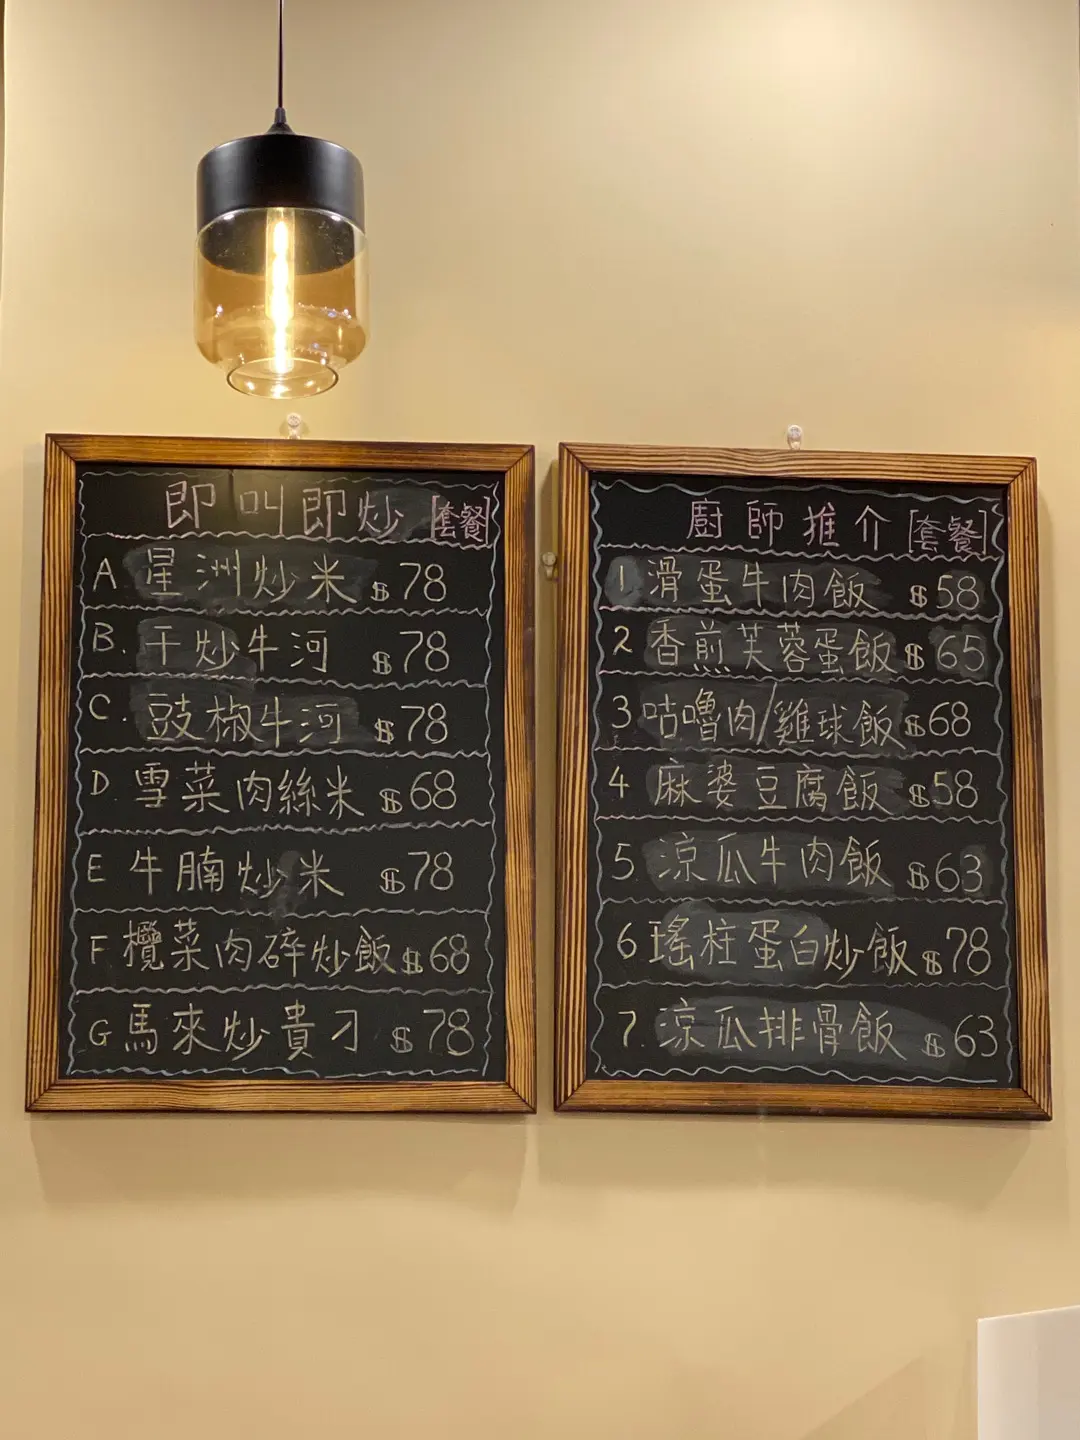 即叫即炒 [套餐]
A 星洲炒米 $78
B. 干炒牛河 $78
C. 豉椒牛河 $78
D 雪菜肉絲米 $68
E 牛腩炒米 $78
F 欖菜肉碎炒飯 $68
G 馬來炒貴刁 $78
廚師推介 [套餐]
1 滑蛋牛肉飯 $58
2 香煎芙蓉蛋飯 $65
3 咕嚕肉/雞球飯 $68
4 麻婆豆腐飯 $58
5 涼瓜牛肉飯 $63
6 瑤柱蛋白炒飯 $78
7. 涼瓜排骨飯 $63